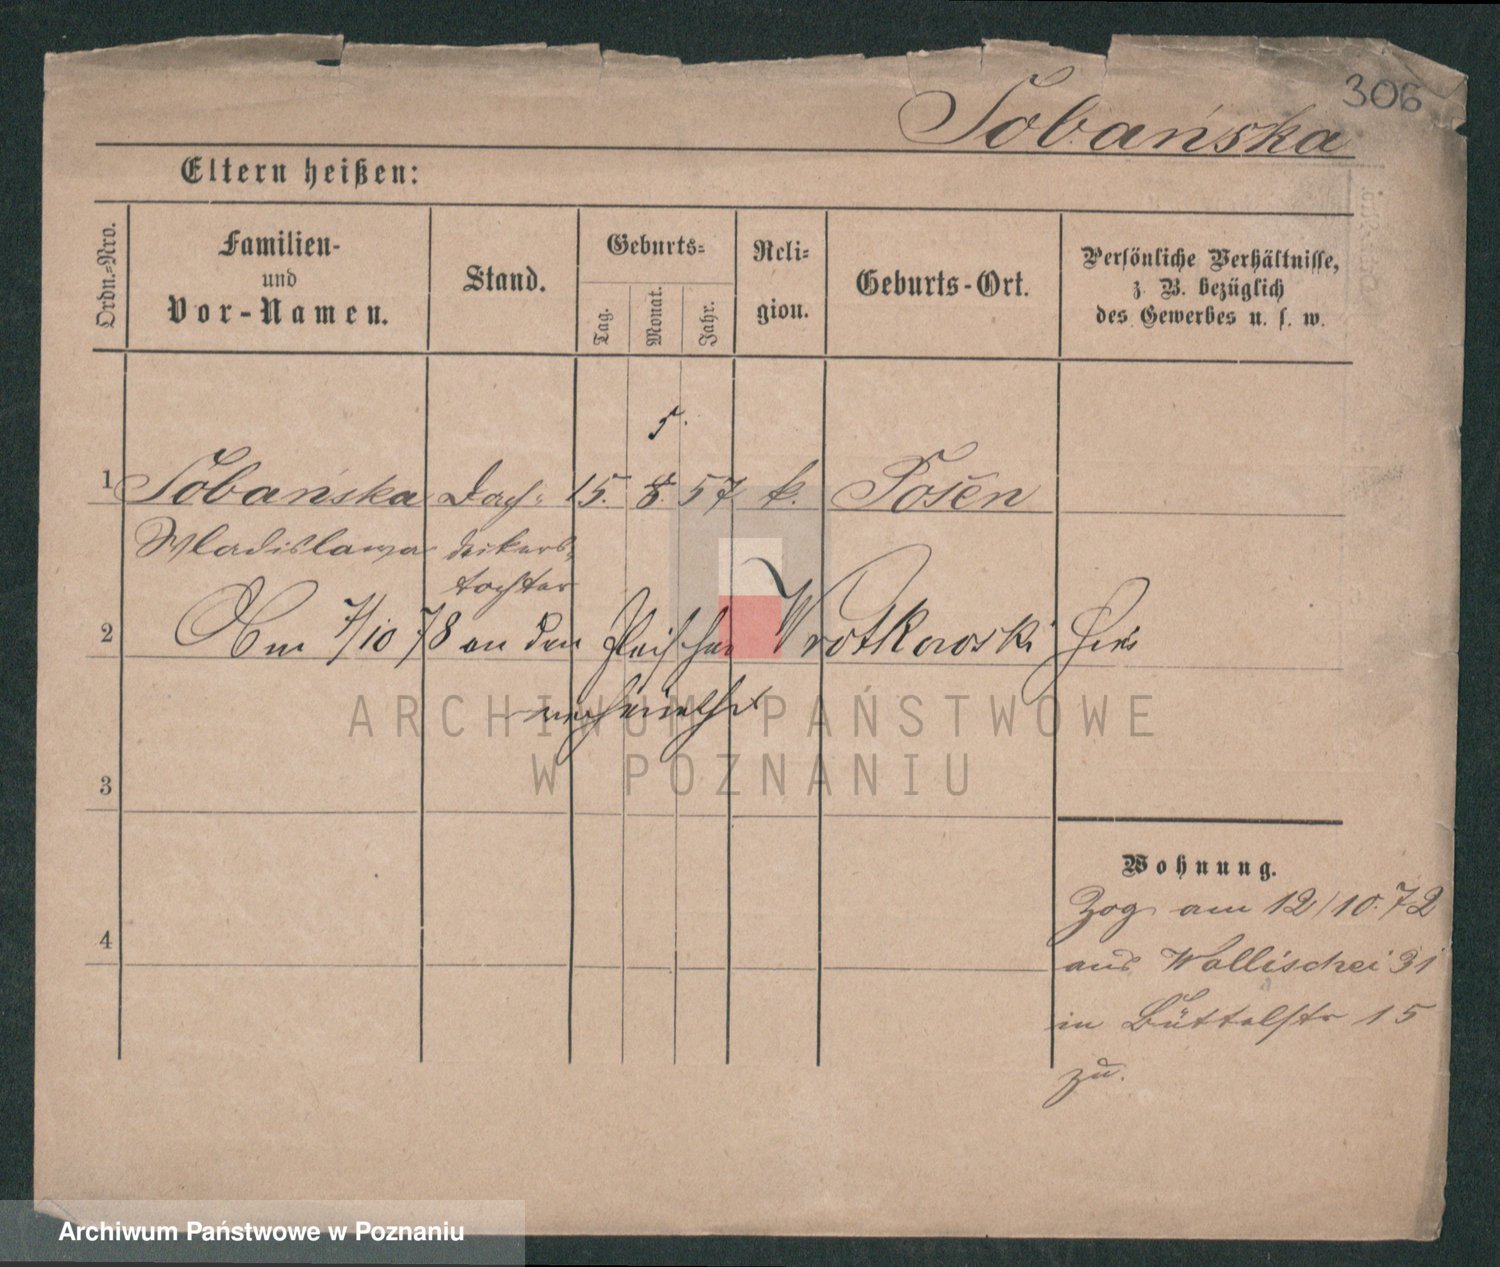 306
Sobańska
Eltern heißen:
Ordn.-Nro.
Familien-
und
Vor-Namen.
Stand.
Geburts-
Tag.
Monat.
Jahr.
Reli-
gion.
Geburts-Ort.
Persönliche Verhältnisse,
z. B. bezüglich
des Gewerbes u. s. w.
5.
1 Sobańska Dach- 15. 8. 57 k. Posen
Wladislawa deckers-
tochter
2 Am 7/10 78 an den Fleischer Wrotkowski hier
verheirathet
ARCHIWUM PAŃSTWOWE
W POZNANIU
3
Wohnung.
Zog am 12/10.72
4
aus Wallischei 31
in Büttelstr 15
zu.
Archiwum Państwowe w Poznaniu